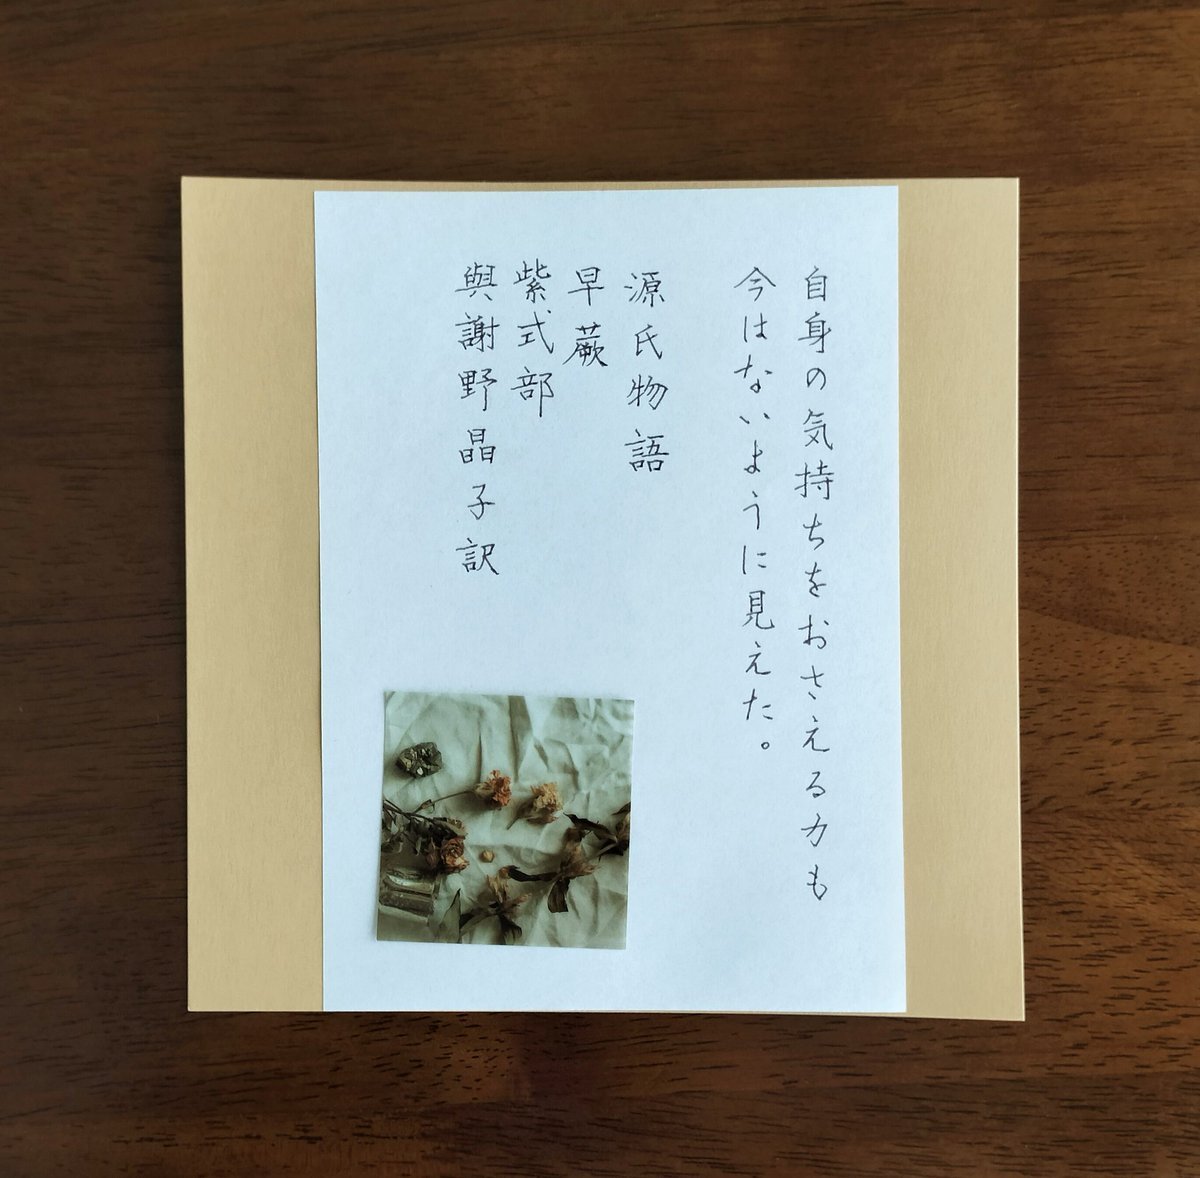 自身の気持ちをおさえる力も
今はないように見えた。
源氏物語
早蕨
紫式部
與謝野晶子訳